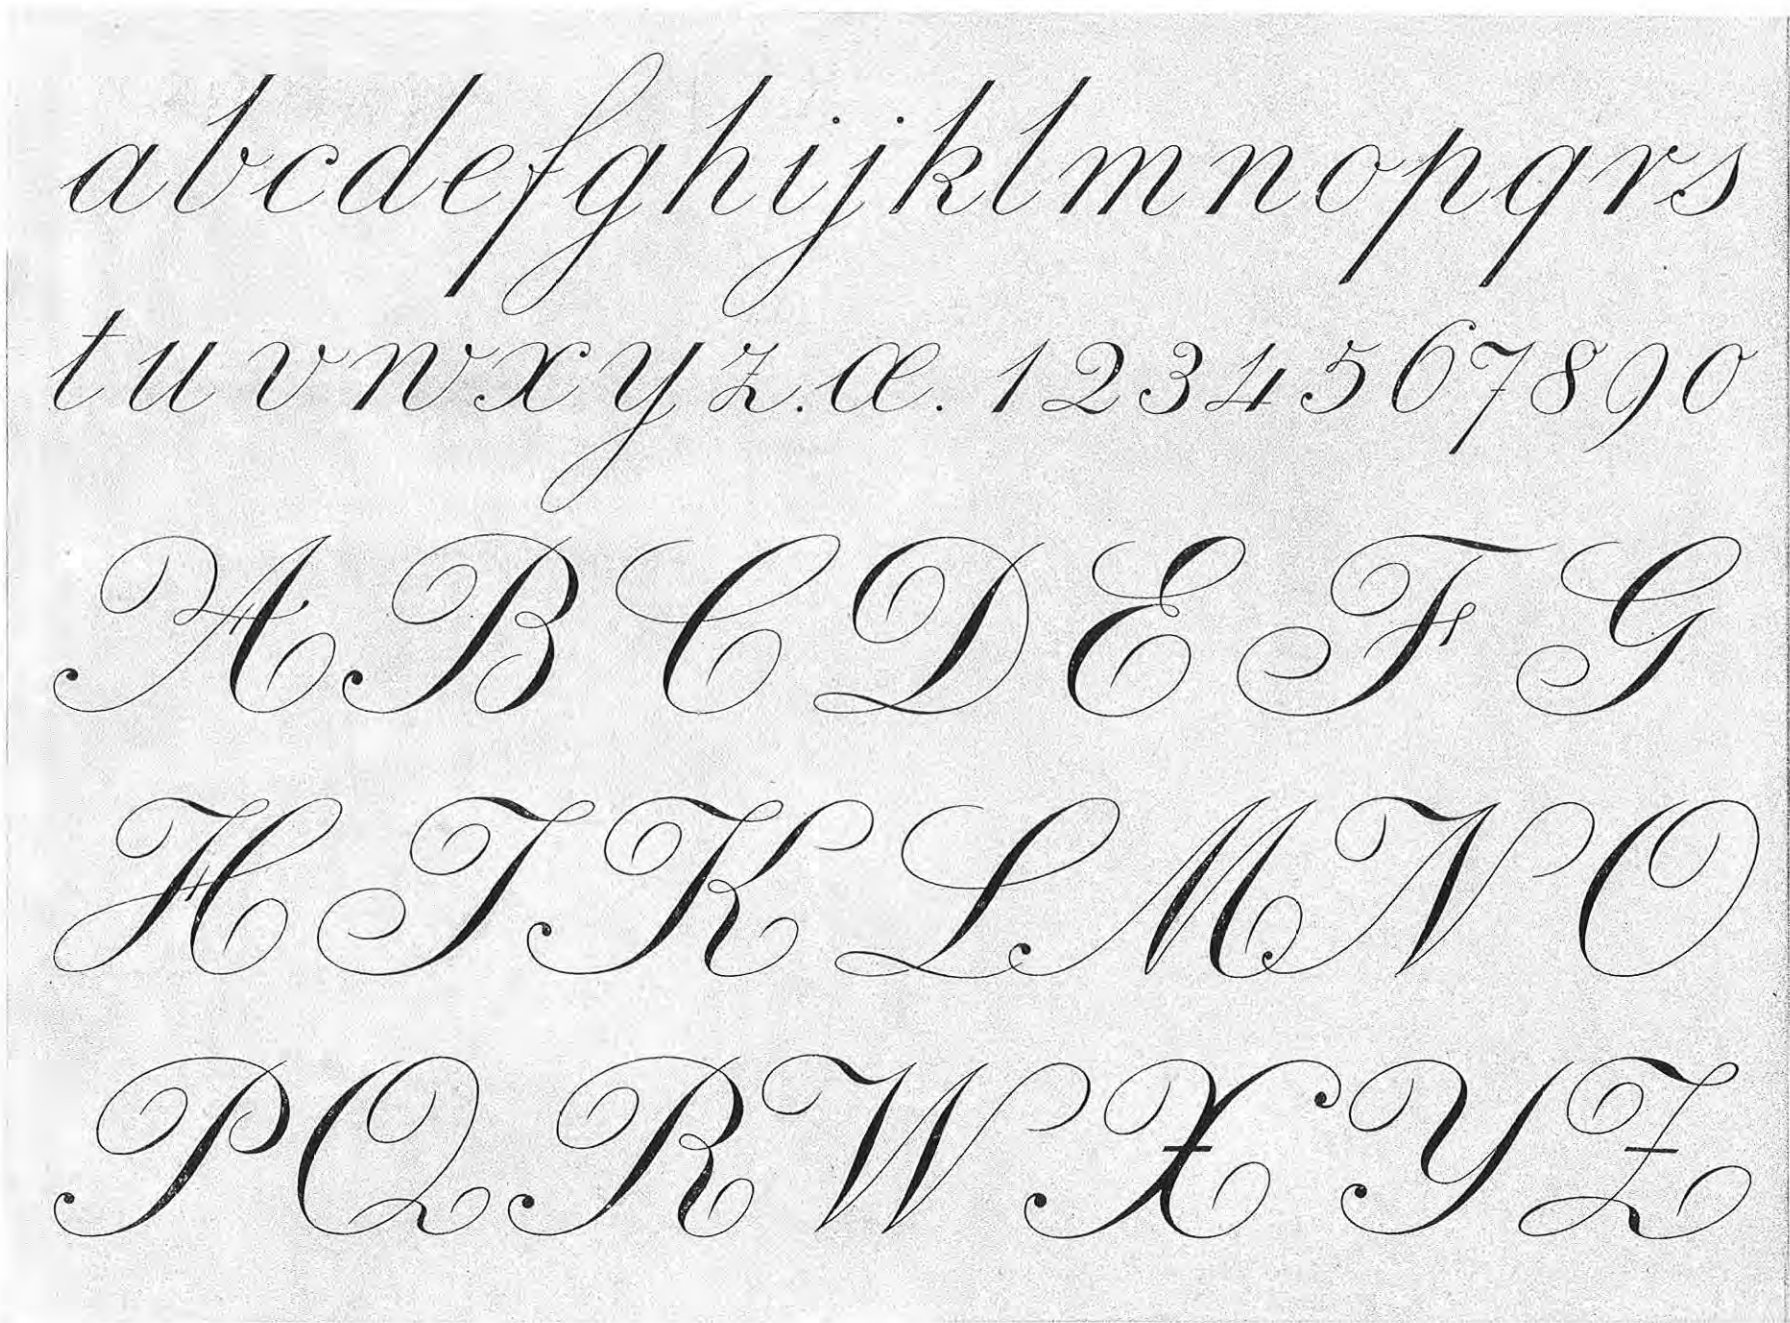 abcdefghijklmnopqrs
tuvwxyz.æ. 1234567890
ABCDEFG
HIKLMNO
PQRWXYZ